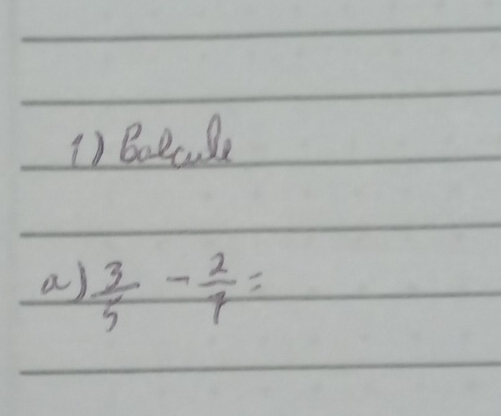 1) Calcule
a) 3/5 - 2/7 =